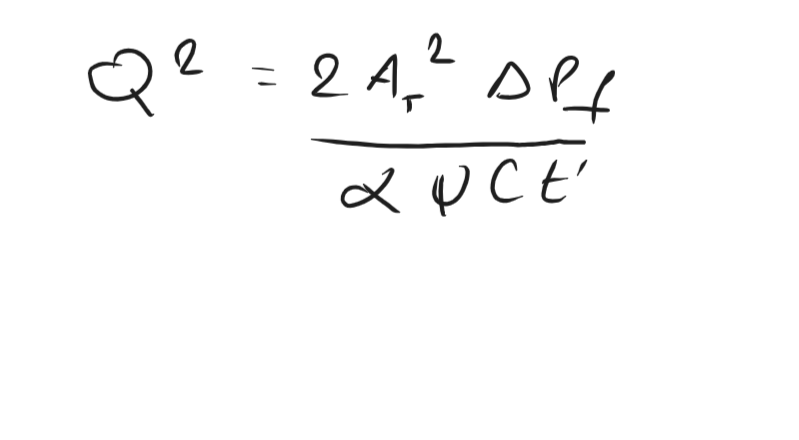 Q² = 2 A_T² Δ P_f
α ψ C t'